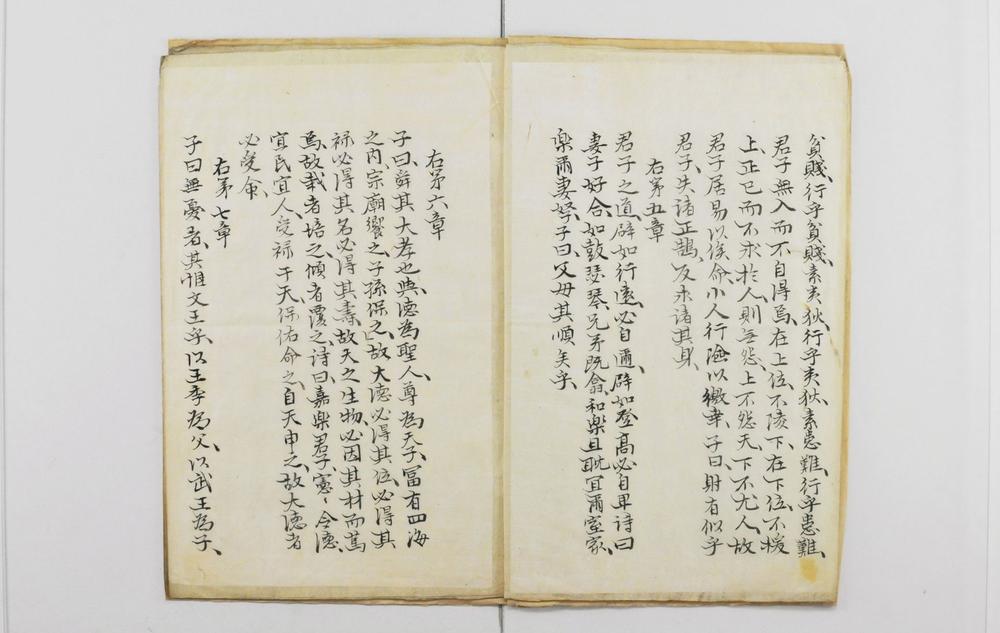 貧賤、行乎貧賤、素夷狄、行乎夷狄、素患難、行乎患難、
君子無入而不自得焉、在上位、不陵下、在下位、不援
上、正己而不求於人、則無怨、上不怨天、下不尤人、故
君子居易以俟命、小人行險以徼幸、子曰射有似乎
君子、失諸正鵠、反求諸其身、
右第五章
君子之道、辟如行遠、必自邇、辟如登高必自卑詩曰
妻子好合、如鼓瑟琴、兄弟既翕、和樂且耽宜爾室家、
樂爾妻孥、子曰、父母其順矣乎、
右第六章
子曰、舜其大孝也與德為聖人、尊為天子、冨有四海
之内、宗廟饗之、子孫保之、故大德必得其位、必得其
祿必得其名必得其壽、故天之生物、必因其材而篤
焉、故栽者培之、傾者覆之、詩曰嘉樂君子、憲〻令德、
宜民宜人、受祿于天、保佑命之、自天申之、故大德者
必受命、
右第七章
子曰無憂者、其惟文王乎、以王季為父、以武王為子、